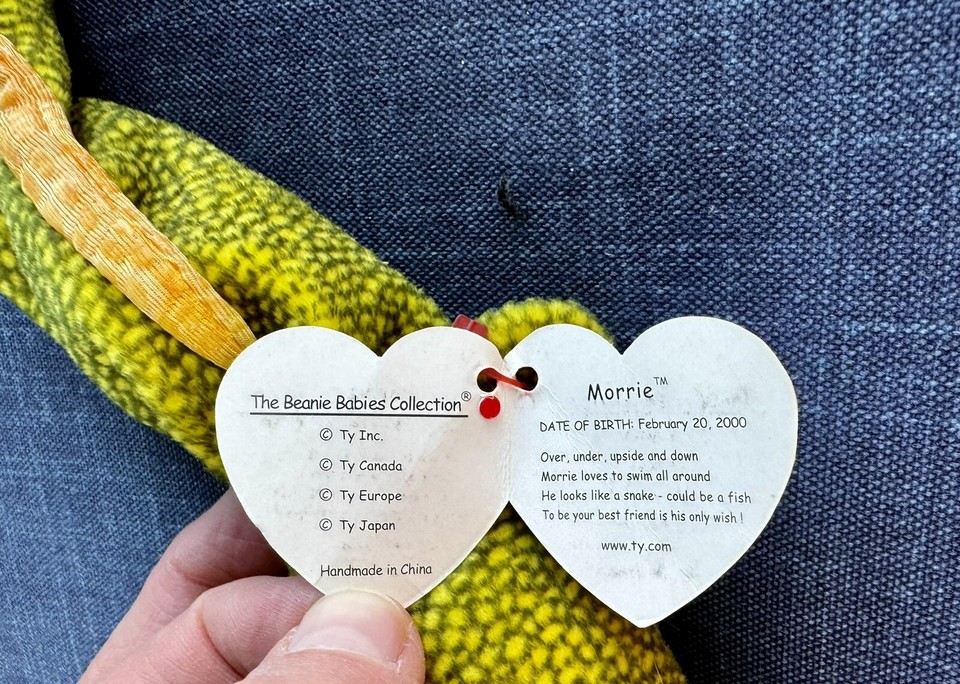 The Beanie Babies Collection®
© Ty Inc.
© Ty Canada
© Ty Europe
© Ty Japan
Handmade in China
Morrie™
DATE OF BIRTH: February 20, 2000
Over, under, upside and down
Morrie loves to swim all around
He looks like a snake - could be a fish
To be your best friend is his only wish !
www.ty.com